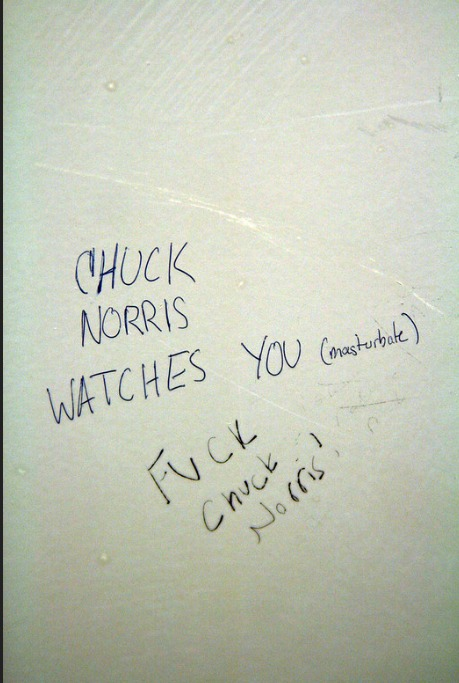 CHUCK
NORRIS
WATCHES YOU (masturbate)
FUCK
Chuck
Norris!